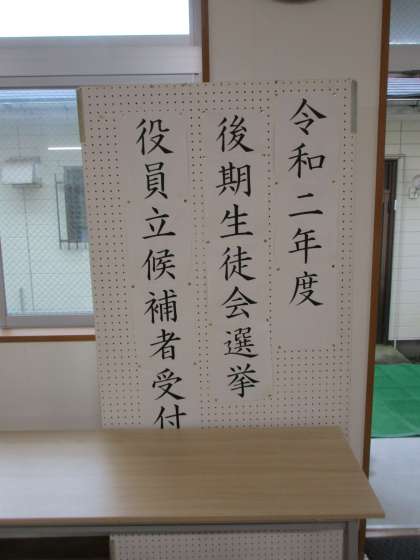 令和二年度
後期生徒会選挙
役員立候補者受付